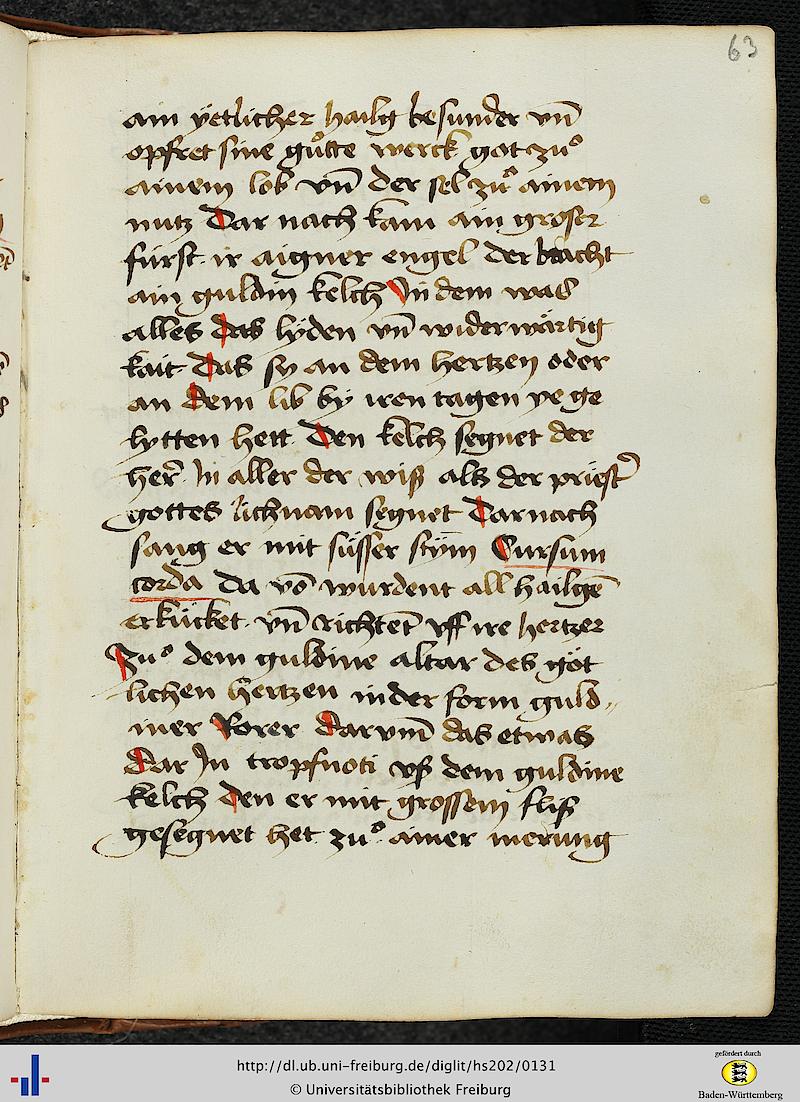 63
ain yetlicher hailg besunder vn̄
opfret sine gůtte werck got zuͦ
ainem lob vn̄ der sel zuͦ ainem
nutz Dar nach kam ain groser
fürst ir aigner engel der bracht
ain guldin kelch In dem was
alles das lyden vn̄ widerwärtig
kait Das sy an dem hertzen oder
an dem lib by iren tagen ye ge
lytten hett Den kelch segnet der
her̄ In aller der wiß als der priestʾ
gottes lichnam segnet Dar nach
sang er mit süsser stym̄ Sursum
corda Da vō wurdent all hailgē
erkücket vn̄ richtētt vff ire hertzer
Zuͦ dem guldine altar des göt
lichen hertzen in der form guld〃
iner Rorer Darvm̄ das etwas
Dar In tropfnoti vß dem guldine
kelch den er mit grossem fliß
gesegnet het zuͦ ainer merung
http://dl.ub.uni-freiburg.de/diglit/hs202/0131
© Universitätsbibliothek Freiburg
gefördert durch
Baden-Württemberg